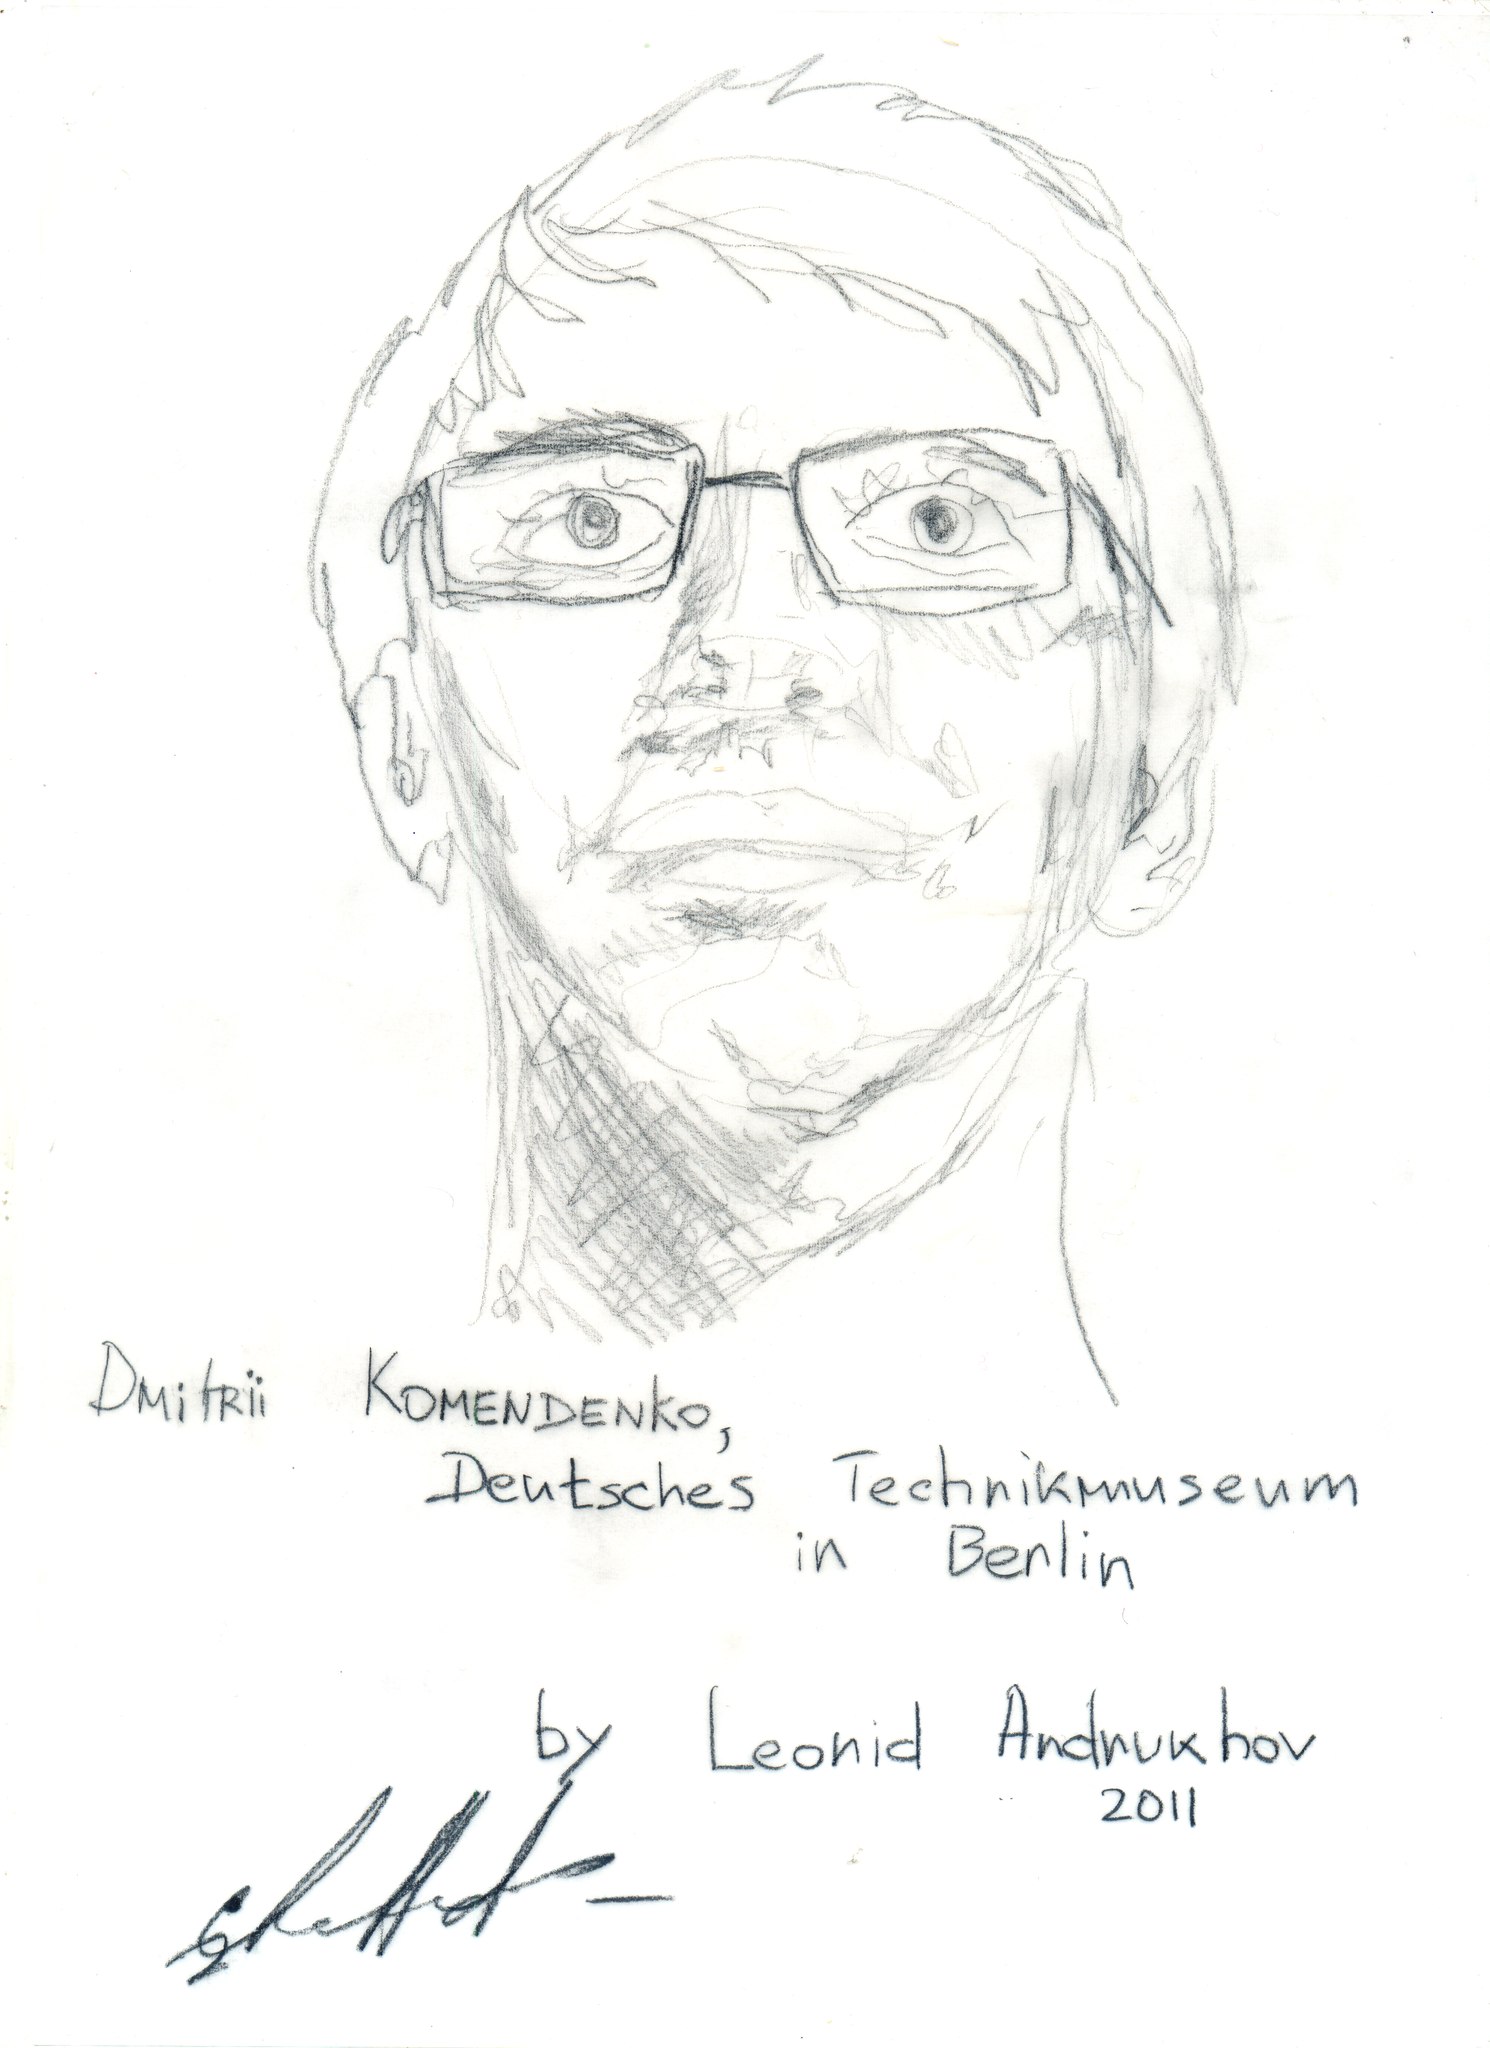 Dmitrii Komendenko,
Deutsches Technikmuseum
in Berlin
by Leonid Andrukhov
2011